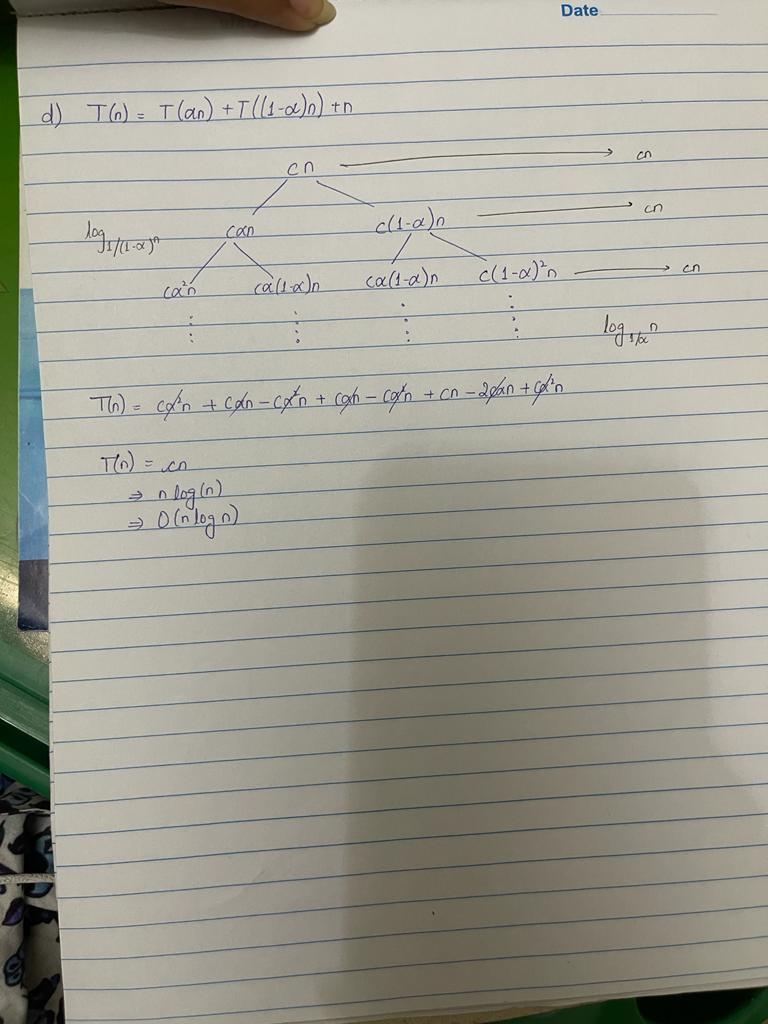 Date
d) T(n) = T(αn) + T((1-α)n) + n
cn → cn
log_{1/(1-α)} n
cαn c(1-α)n → cn
cα²n cα(1-α)n cα(1-α)n c(1-α)²n → cn
log_{1/α} n
T(n) = cα²n + cαn - cα²n + cαn - cα²n + cn - 2cαn + cα²n
T(n) = cn
⇒ n log(n)
⇒ O(n log n)